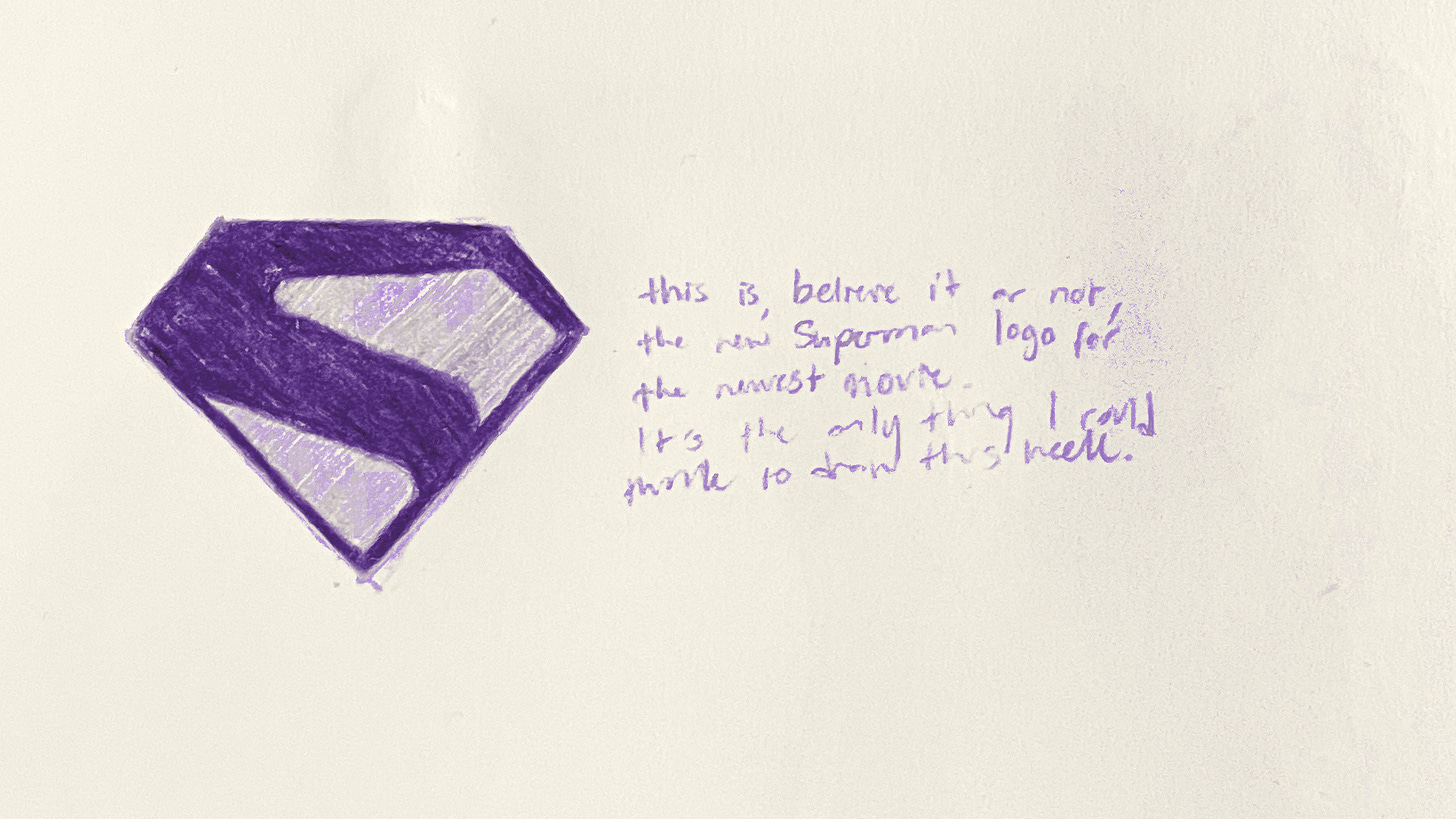 this is, believe it or not,
the new Superman logo for
the newest movie.
It's the only thing I could
think to draw this week.